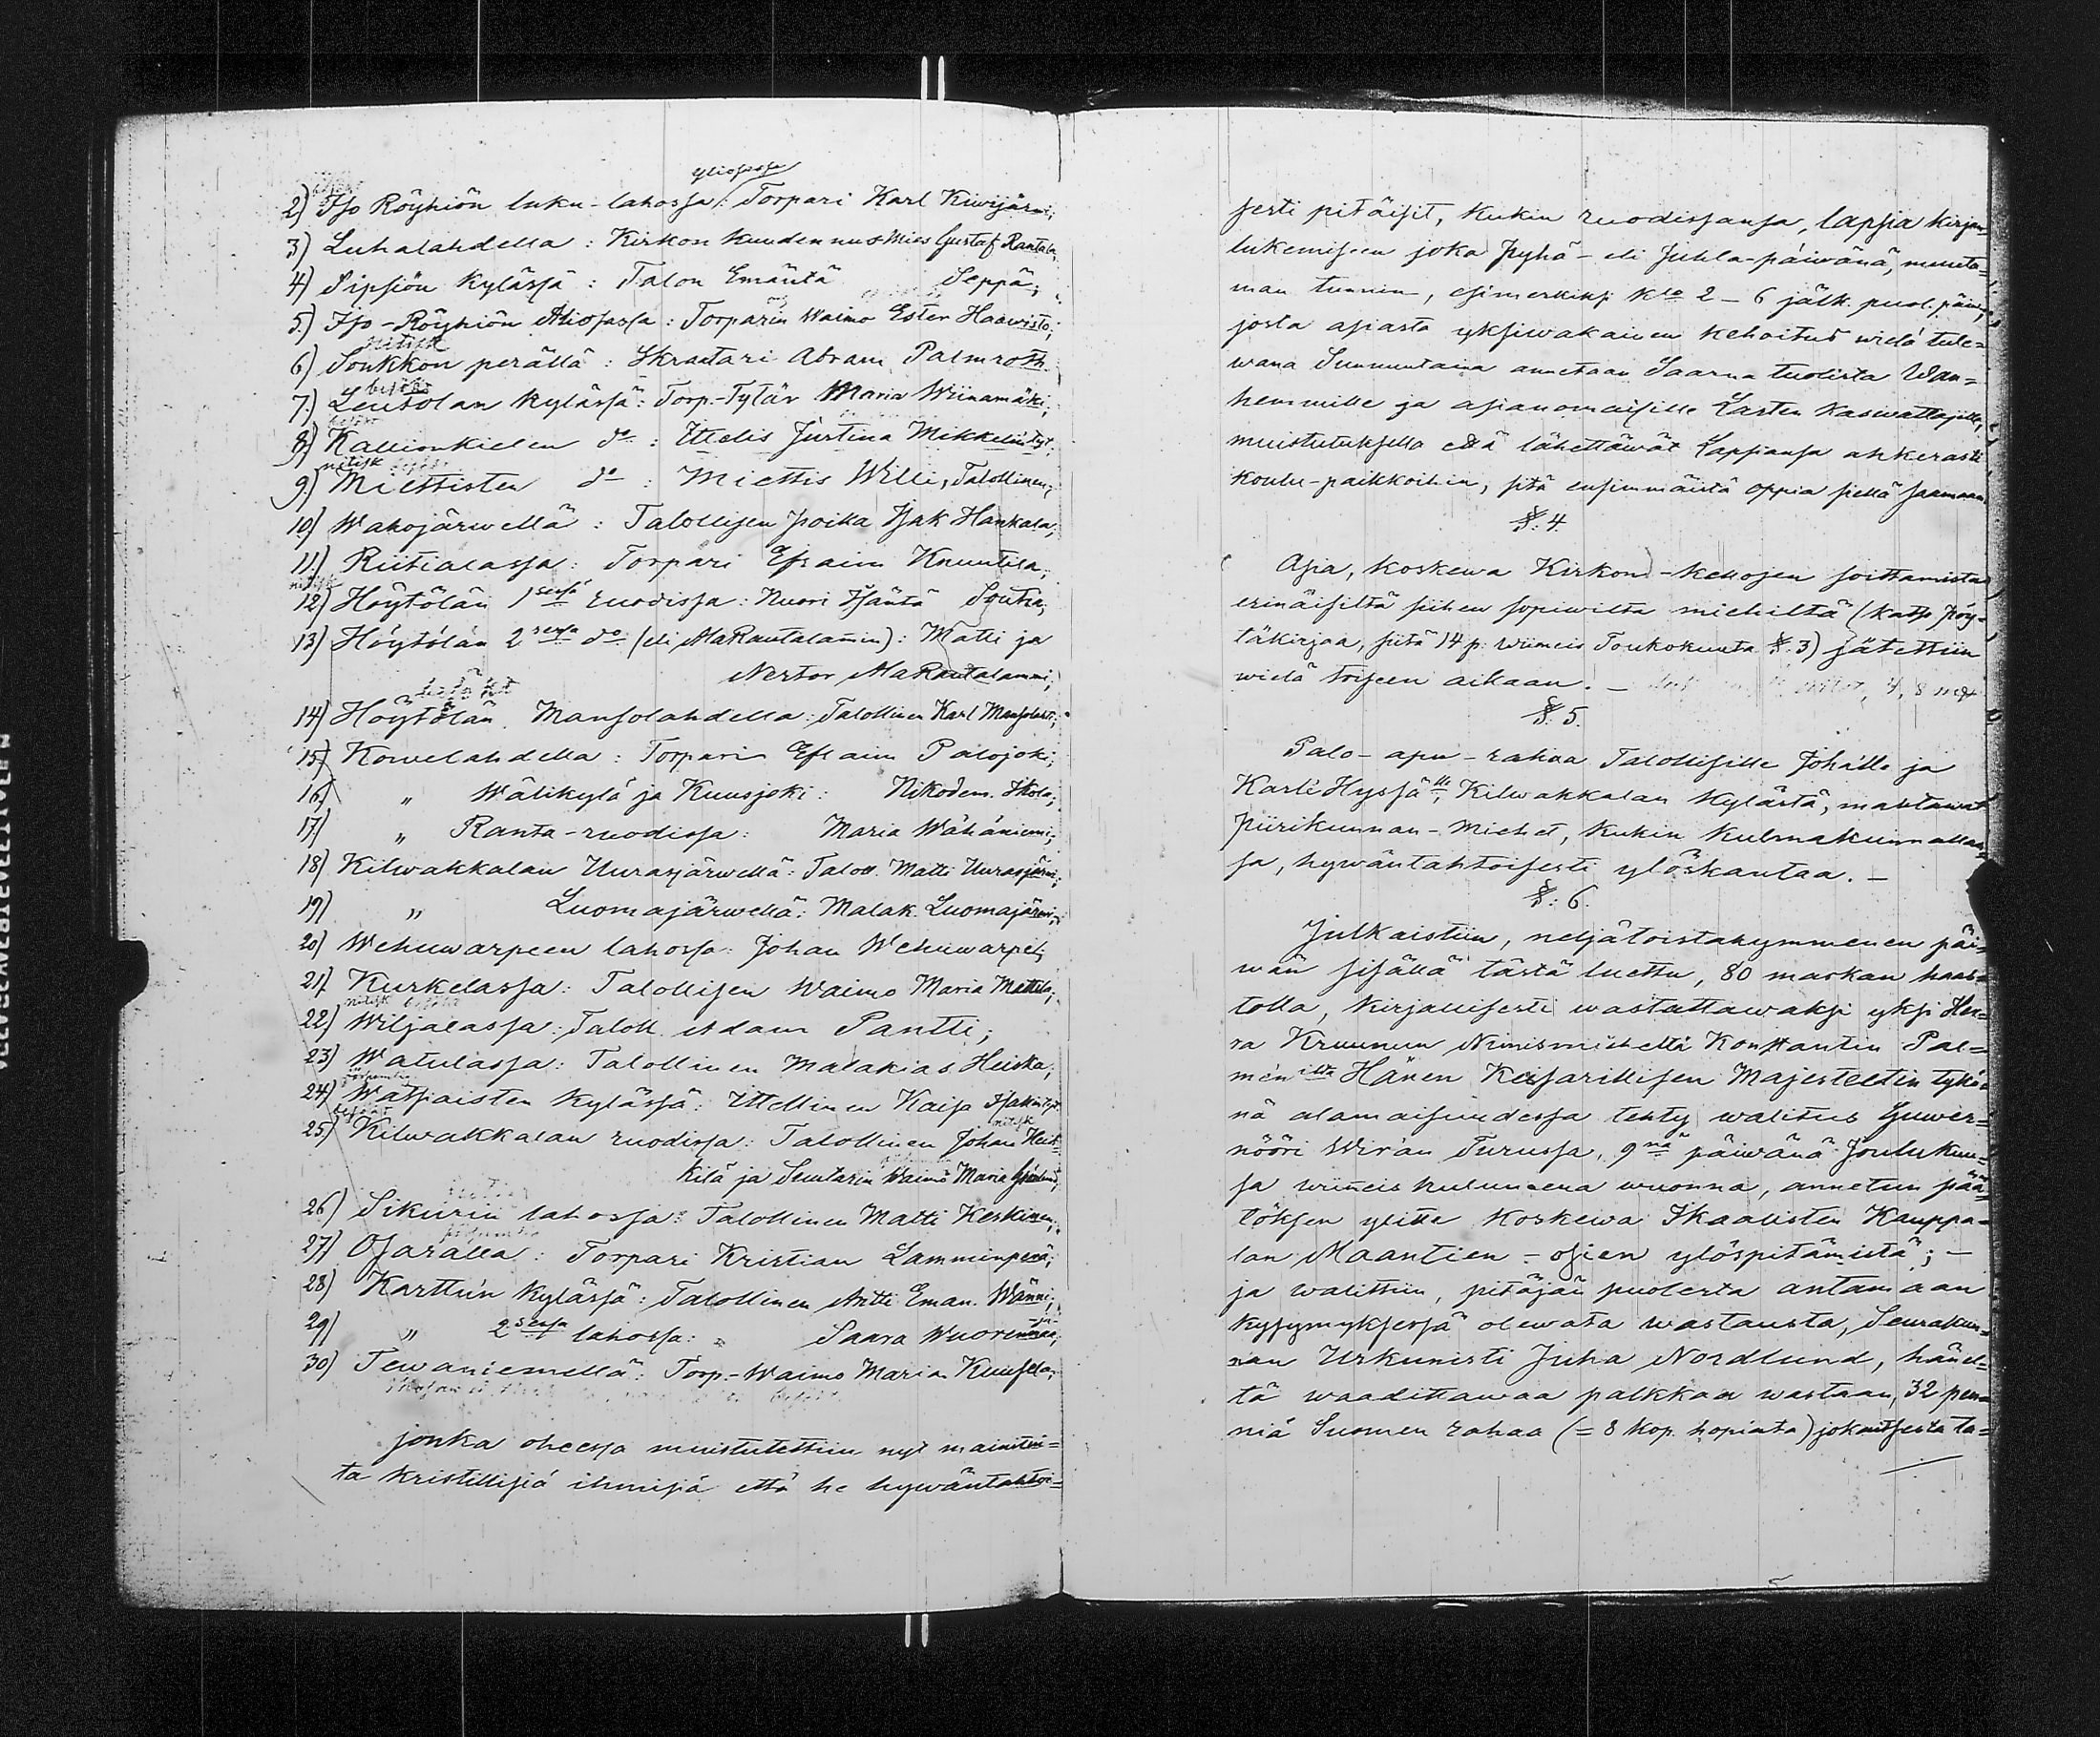 yliosassa
2) Iso Röyhiön luku-lahossa: Torpari Karl Kiwijärwi;
3) Luhalahdella: Kirkon kuudennus Mies Gustaf Rantala,
4) Sipsiön kylässä: Talon Emäntä Seppä;
5.) Iso-Röyhiön Aliosassa: Torparin Waimo Ester Haawisto;
nitisk
6) Soukkon perällä: Skraatari Abram Palmroth.
besökt
7.) Leutolan kylässä: Torp.-Tytär Maria Wiinamäki,
8) Kallionkielen do: Ittelis Justina Mikkelint.
nitisk
9.) Miettisten do: Miettis Willi, Talollinen;
10) Wahojärwellä: Talollisen poika Isak Hankala;
11.) Riitialassa: Torpari Efraim Knuutila;
nitisk
12) Höytölän 1sessä ruodissa: Nuori Isäntä Soutka;
13) Höytölän 2sessa do (eli AlaRautalamin): Matti ja
Nestor AlaRautalammi;
besökt
14) Höytölän Mansolahdella: Talollinen Karl Mansolahti;
15) Kowelahdella: Torpari Efraim Palojoki;
16) " Wälikylä ja Kuusjoki: Nikodem. Ikola;
17) " Ranta-ruodissa: Maria Wähäniemi;
18) Kilwakkalan Uurasjärwellä: Taloll. Matti Uurasjärwi;
19) " Luomajärwellä: Malak. Luomajärwi;
20) Wehuwarpeen lahossa: Johan Wehuwarpe;
21) Kurkelassa: Talollisen Waimo Maria Mattila;
nitisk besökt
22) Wiljalassa: Taloll. Adam Pantti;
23) Watulassa: Talollinen Malakias Heiska;
24) Watsaisten kylässä: Ittellinen Kaisa Isakint.
besökt
nitisk
25) Kilwakkalan ruodissa: Talollinen Johan Heik=
kilä ja Suutarin Waimo Maria
26) Sikurin lahossa: Talollinen Matti Keskinen;
27) Ojaralla: Torpari Kristian Lammenperä;
28) Karttu'n kylässä: Talollinen Antti Eman. Wänni;
29) " 2sessa lahossa: Saara Wuorenmaa;
30) Tewaniemellä: Torp.-Waimo Maria Kuusela;
besökt
jonka oheessa muistutettiin nyt mainitui=
ta kristillisiä ihmisiä että he hywäntahtoi=
sesti pitäisit, kukin ruodissansa, lapsia kirjan=
lukemiseen joka pyhä- eli Juhla-päiwänä, muuta=
man tunnin, esimerkiksi klo 2-6 jälk. puol. päiw,
josta asiasta yksiwakainen kehoitus wielä tule=
wana Sunnuntaina annetaan Saarna tuolista Wan=
hemmille ja asianomaisille Lasten kaswattajille,
muistutuksella että lähettäwät Lapsiansa ahkerasti
koulu-paikkoihin, sitä ensimmäistä oppia siellä saamaan
§. 4.
Asia, koskewa Kirkon-kellojen soittamista
erinäisiltä siihen sopiwilta miehiltä (kats. pöy=
täkirjaa, siitä 14 p. wiimeis Toukokuuta §. 3) jätettiin
wielä toiseen aikaan. -
§. 5.
Palo-apu-rahaa Talollisille Johalle ja
Karle Hyssälle, Kilwakkalan kylästä, mahtawat
piirikunnan-Miehet, kukin kulmakunnallan=
sa, hywäntahtoisesti ylöskantaa. -
§. 6.
Julkaistiin, neljätoistakymmenen päi=
wän sisällä tästä luettu, 80 markan haas=
tolla, kirjallisesti wastattawaksi yksi Her=
ra Kruunun Nimismieheltä Konstantin Pal=
men'ilta Hänen Keisarillisen Majesteetin tykö=
nä alamaisuudessa tehty walitus Guwer=
nööri Wiran Turussa, 9nä päiwänä Joulukuu=
sa wiimeis kuluneena wuonna, annetun pää=
töksen ylitte koskewa Ikaalisten Kauppa=
lan Maantien-osien ylöspitämistä; -
ja walittiin, pitäjän puolesta antamaan
kysymyksessä olewata wastausta, Seurakun=
nan Urkunisti Juha Nordlund, hänel=
tä waadittawaa palkkaa wastaan, 32 pen=
niä Suomen rahaa (= 8 kop. hopiata) jokaitsesta ta=